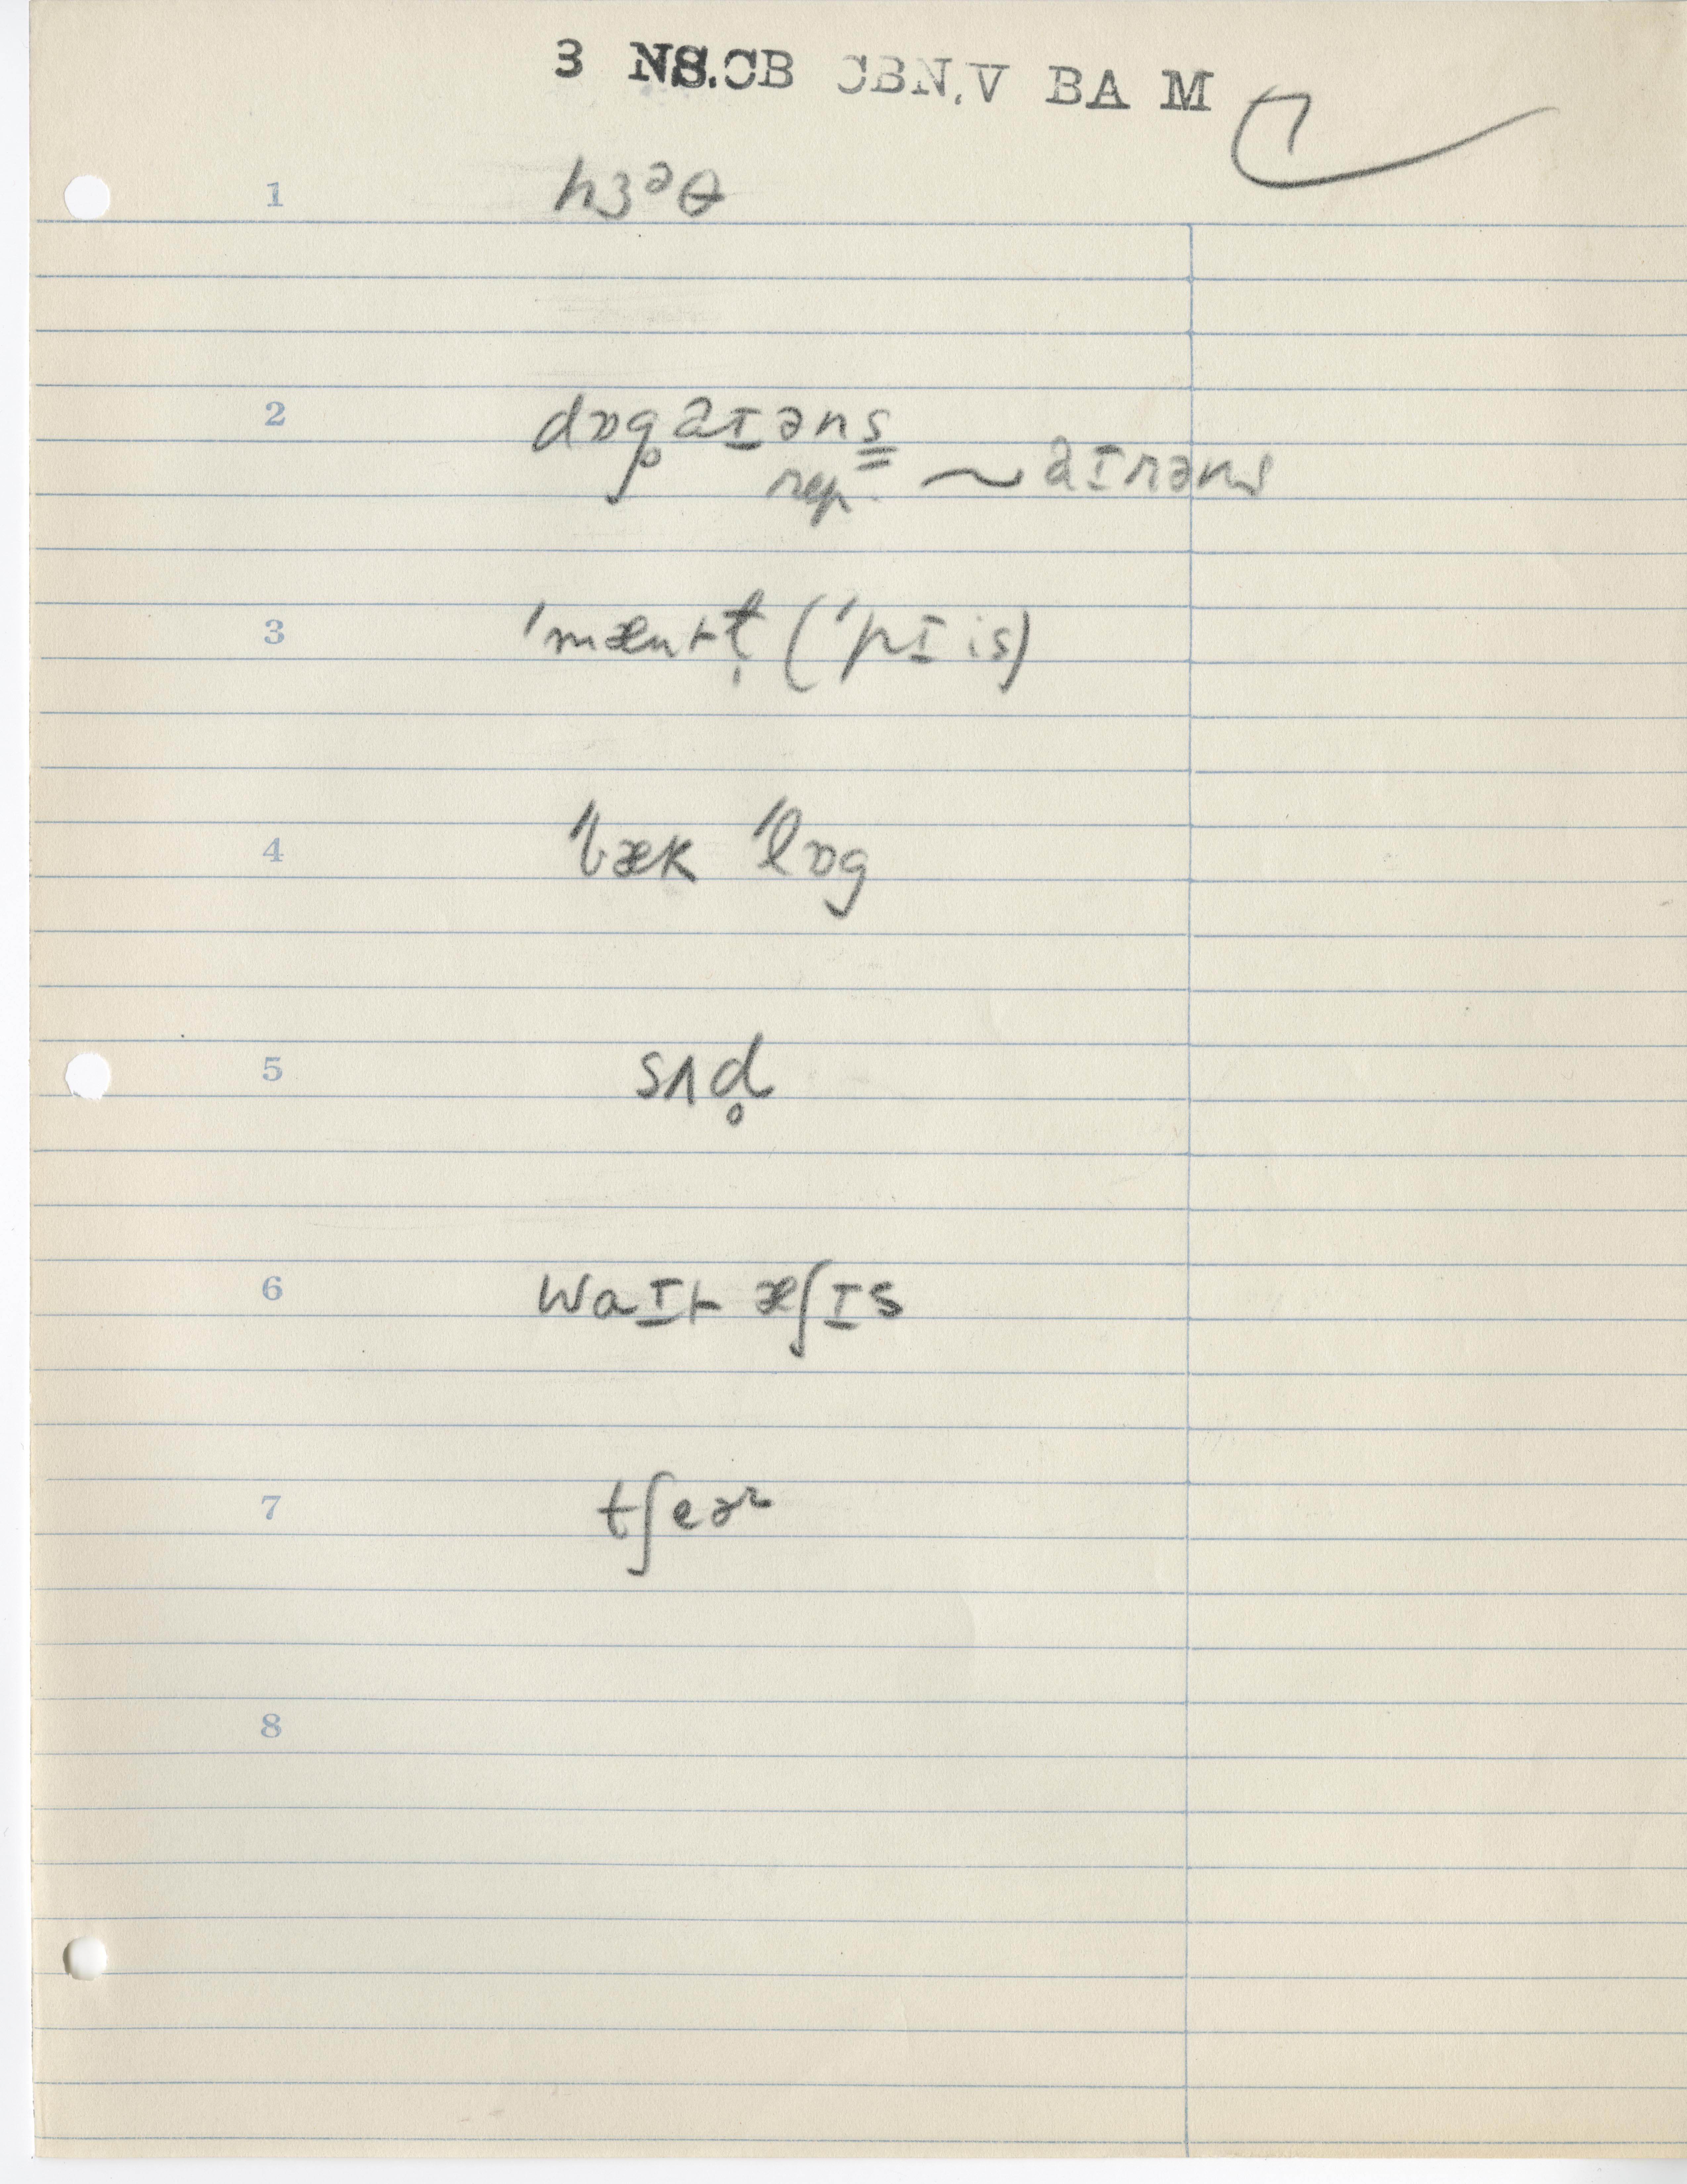 3 NS.CB CBN.V BA M
7
1 hɜᵊθ
2 dɒg̥ aɪəns
rep. ~ aɪrəns
3 ˈmænt (ˈpɪis)
4 ˈbæk ˈlɒg
5 sʌd̥
6 waɪt æʃɪs
7 tʃeəʳ
8